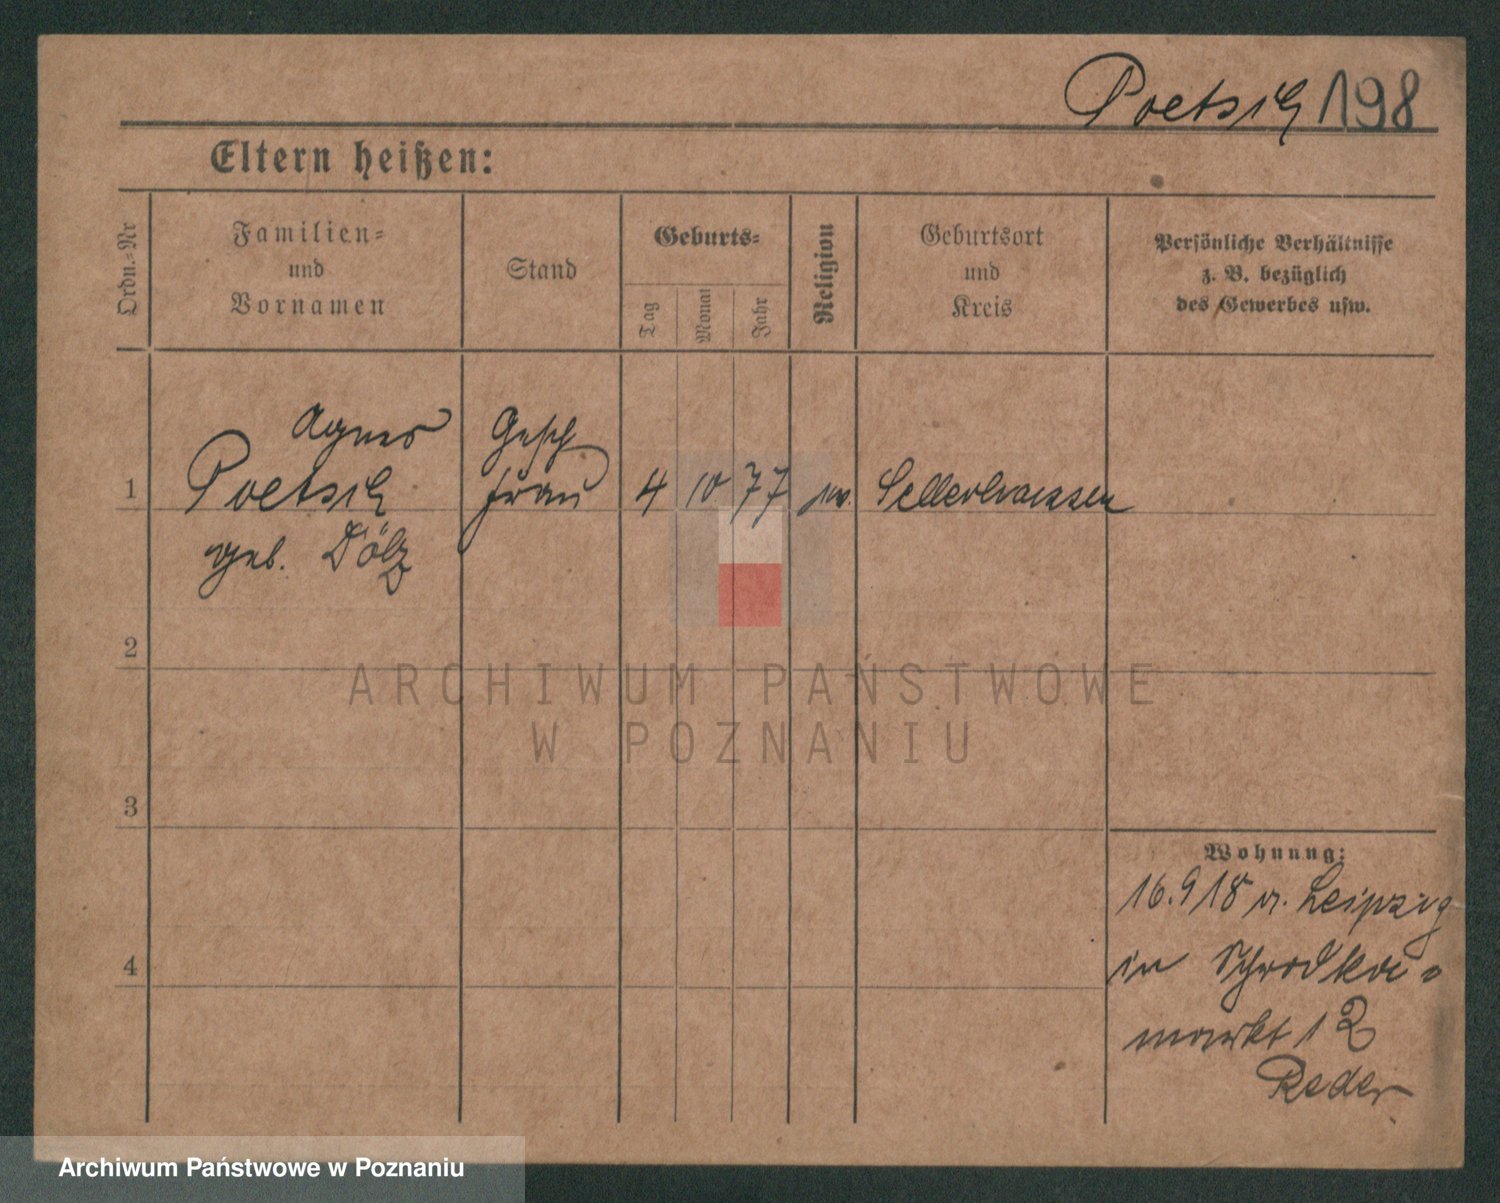 Poetsch 198
Eltern heißen:
Ordn.-Nr
Familien-
und
Vornamen
Stand
Geburts-
Tag
Monat
Jahr
Religion
Geburtsort
und
Kreis
Persönliche Verhältnisse
z. B. bezüglich
des Gewerbes usw.
Agnes
Gesch
1 Poetsch frau 4 10 77
geb.
2
ARCHIWUM PAŃSTWOWE
W POZNANIU
3
4
Wohnung:
16.9 18 v. Leipzig
in Schrodka-
markt 12
Reder
Archiwum Państwowe w Poznaniu